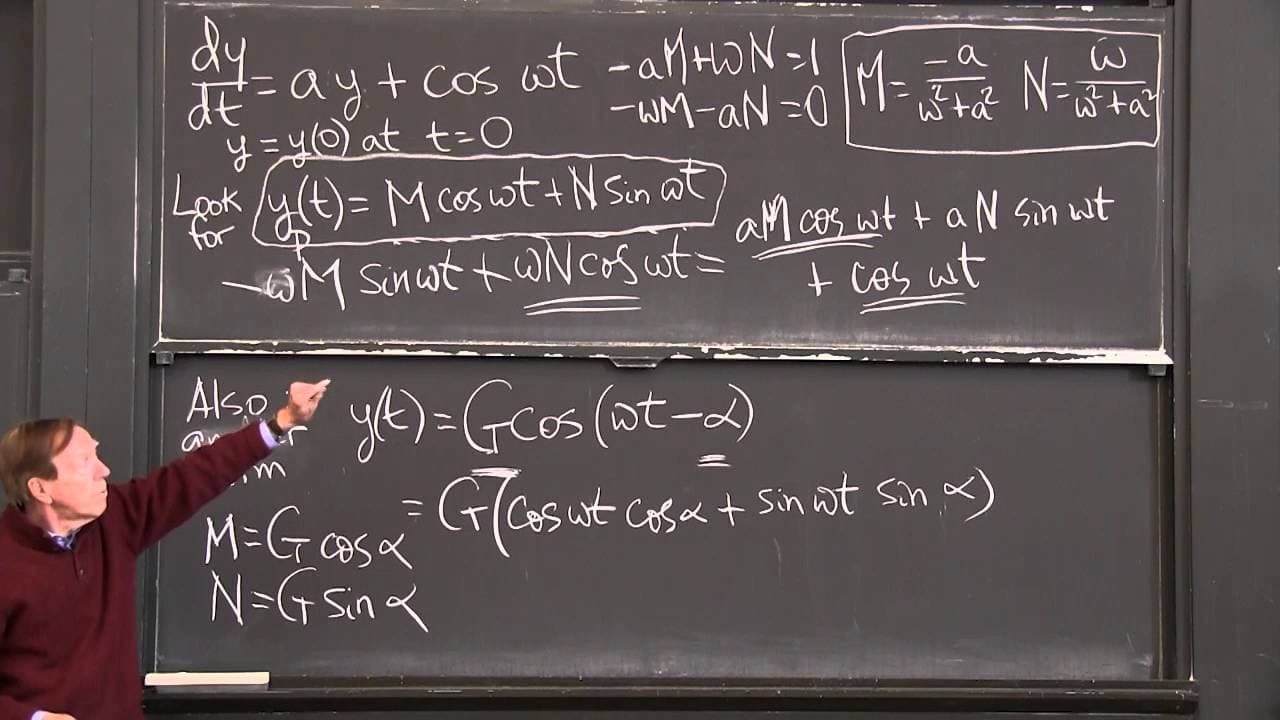 dy/dt = ay + cos ωt
y = y(0) at t=0
-aM+ωN=1
-ωM-aN=0
M = -a/(ω²+a²) N = ω/(ω²+a²)
Look for y_p(t) = M cos ωt + N sin ωt
-ωM sin ωt + ωN cos ωt = aM cos ωt + aN sin ωt
+ cos ωt
Also
y(t) = G cos (ωt - α)
= G(cos ωt cos α + sin ωt sin α)
M = G cos α
N = G sin α